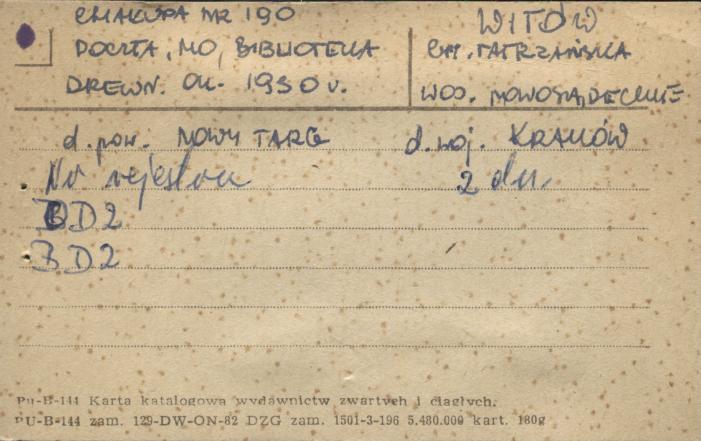 CHAŁUPA NR 190
POCZTA, MO, BIBLIOTEKA
DREWN. OK. 1930 r.
WITÓW
GM. TATRZAŃSKA
WOJ. NOWOSĄDECKIE
d. pow. NOWY TARG
d. woj. KRAKÓW
Nr rejestru
2 dn.
BD2
BD2
Pu-B-144 Karta katalogowa wydawnictw zwartych i ciągłych.
PU-B-144 zam. 129-DW-ON-82 DZG zam. 1501-3-196 5.480.000 kart. 180g